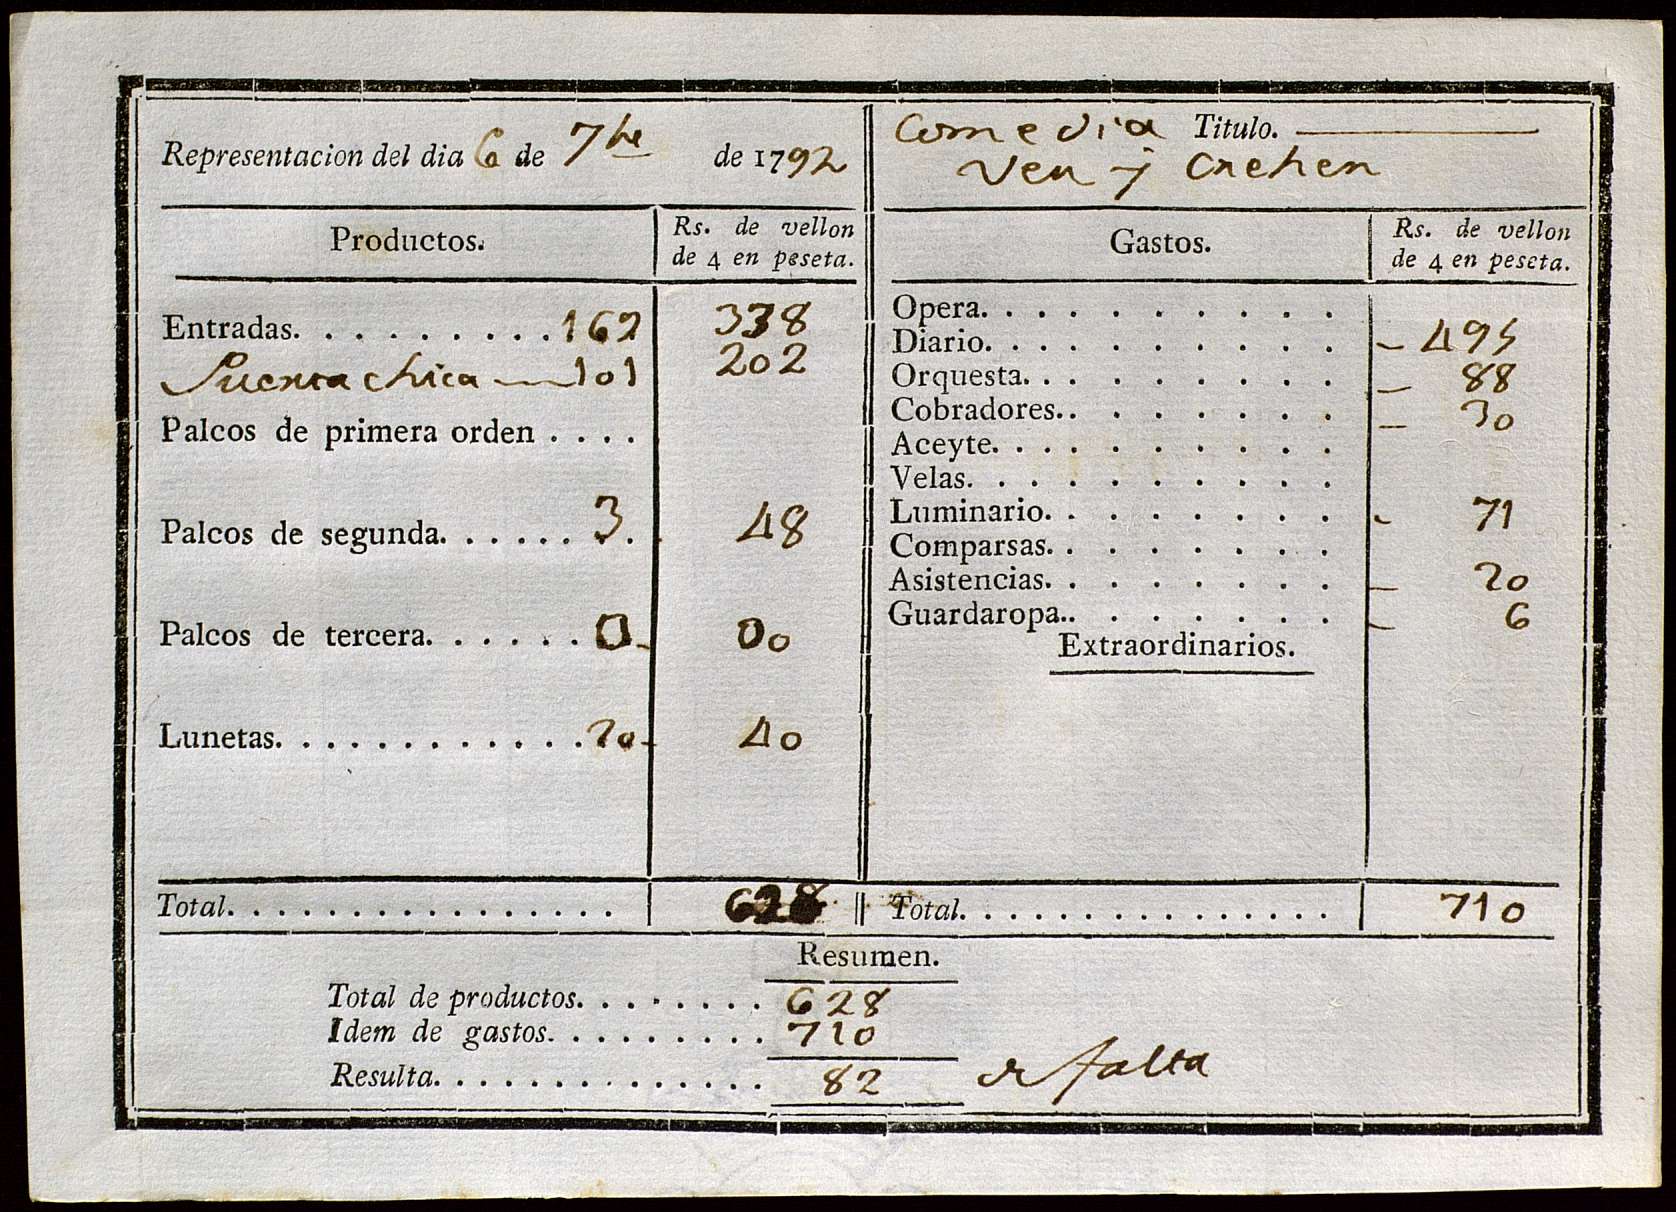 Representacion del dia 6 de 7bre de 1792
Comedia Titulo.
Ver y Creher
Productos. Rs. de vellon de 4 en peseta.
Entradas. 169 338
Puerta chica 101 202
Palcos de primera orden
Palcos de segunda. 3 48
Palcos de tercera. 0 00
Lunetas. 20 40
Total. 628
Gastos. Rs. de vellon de 4 en peseta.
Opera.
Diario. 495
Orquesta. 88
Cobradores. 30
Aceyte.
Velas.
Luminario. 71
Comparsas.
Asistencias. 20
Guardaropa. 6
Extraordinarios.
Total. 710
Resumen.
Total de productos. 628
Idem de gastos. 710
Resulta. 82 de falta